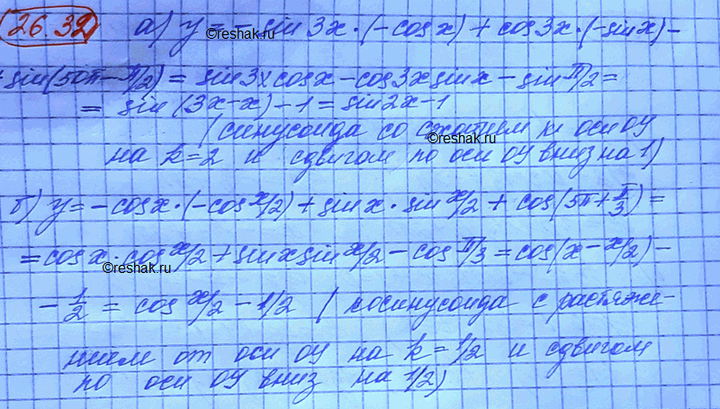 26.32 а) y = -sin 3x·(-cos x) + cos 3x·(-sin x) -
+ sin(50π - π/2) = sin 3x cos x - cos 3x sin x - sin π/2 =
= sin (3x-x) - 1 = sin 2x - 1
(синусоида со сжатием к оси OY
на k=2 и сдвигом по оси OY вниз на 1)
б) y = -cos x·(-cos x/2) + sin x · sin x/2 + cos(5π + π/3) =
= cos x · cos x/2 + sin x sin x/2 - cos π/3 = cos(x - x/2) -
- 1/2 = cos x/2 - 1/2 (косинусоида с растяже-
нием от оси OY на k = 1/2 и сдвигом
по оси OY вниз на 1/2)
©reshak.ru
©reshak.ru
©reshak.ru